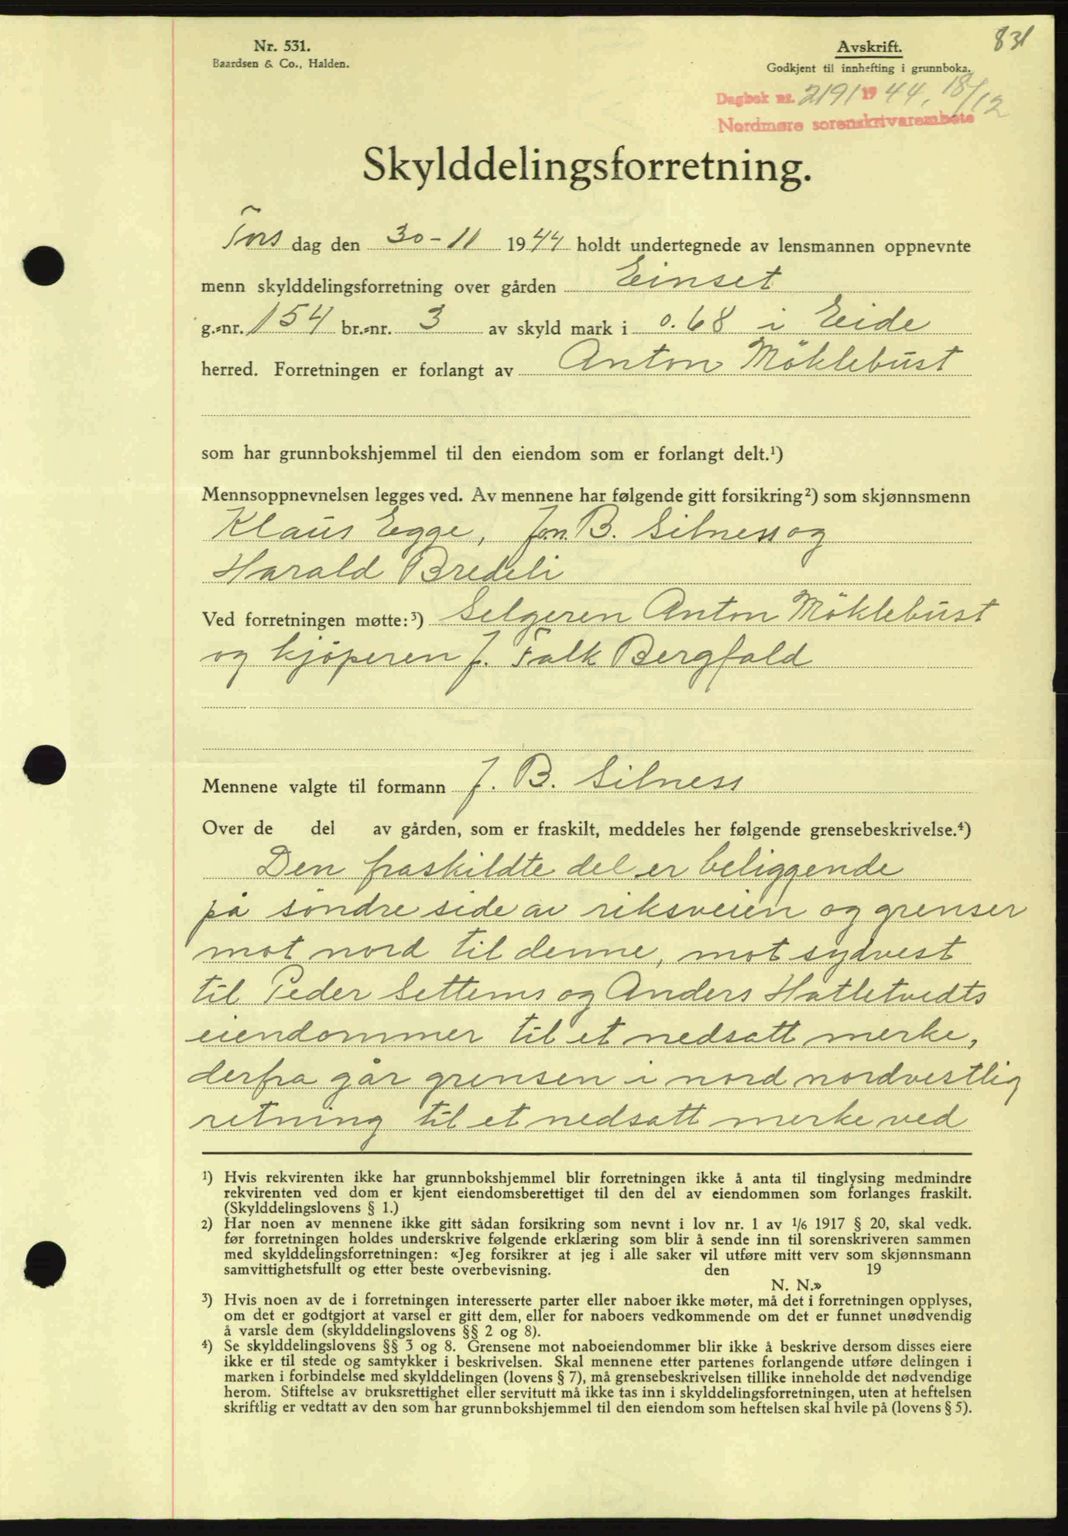 831
Nr. 531.
Baardsen & Co., Halden.
Avskrift.
Godkjent til innhefting i grunnboka.
Dagbok nr. 2191 1944, 18/12
Nordmøre sorenskriverembete
Skylddelingsforretning.
Tors dag den 30-11 1944 holdt undertegnede av lensmannen oppnevnte
menn skylddelingsforretning over gården Einset
g.-nr. 154 br.-nr. 3 av skyld mark i 0.68 i Eide
herred. Forretningen er forlangt av Anton Möklebust
som har grunnbokshjemmel til den eiendom som er forlangt delt.¹)
Mennsoppnevnelsen legges ved. Av mennene har følgende gitt forsikring²) som skjønnsmenn
Klaus Egge, Jon. B. Silness og
Harald Bredeli
Ved forretningen møtte:³) Selgeren Anton Möklebust
og kjöperen J. Falk Bergfald
Mennene valgte til formann J. B. Silness
Over de del av gården, som er fraskilt, meddeles her følgende grensebeskrivelse.⁴)
Den fraskildte del er beliggende
på söndre side av riksveien og grenser
mot nord til denne, mot sydvest
til Peder Settems og Anders Hatletvedts
eiendommer til et nedsatt merke,
derfra går grensen i nord nordvestlig
retning til et nedsatt merke ved
¹) Hvis rekvirenten ikke har grunnbokshjemmel blir forretningen ikke å anta til tinglysing medmindre
rekvirenten ved dom er kjent eiendomsberettiget til den del av eiendommen som forlanges fraskilt.
(Skylddelingslovens § 1.)
2) Har noen av mennene ikke gitt sådan forsikring som nevnt i lov nr. 1 av ¹/₆ 1917 § 20, skal vedk.
før forretningen holdes underskrive følgende erklæring som blir å sende inn til sorenskriveren sammen
med skylddelingsforretningen: «Jeg forsikrer at jeg i alle saker vil utføre mitt verv som skjønnsmann
samvittighetsfullt og etter beste overbevisning. den 19
N. N.»
³) Hvis noen av de i forretningen interesserte parter eller naboer ikke møter, må det i forretningen opplyses,
om det er godtgjort at varsel er gitt dem, eller for naboers vedkommende om det er funnet unødvendig
å varsle dem (skylddelingslovens §§ 2 og 8).
⁴) Se skylddelingslovens §§ 3 og 8. Grensene mot naboeiendommer blir ikke å beskrive dersom disses eiere
ikke er til stede og samtykker i beskrivelsen. Skal mennene etter partenes forlangende utføre delingen i
marken i forbindelse med skylddelingen (lovens § 7), må grensebeskrivelsen tillike inneholde det nødvendige
herom. Stiftelse av bruksrettighet eller servitutt må ikke tas inn i skylddelingsforretningen, uten at heftelsen
skriftlig er vedtatt av den som har grunnbokshjemmel til den eiendom som heftelsen skal hvile på (lovens § 5).